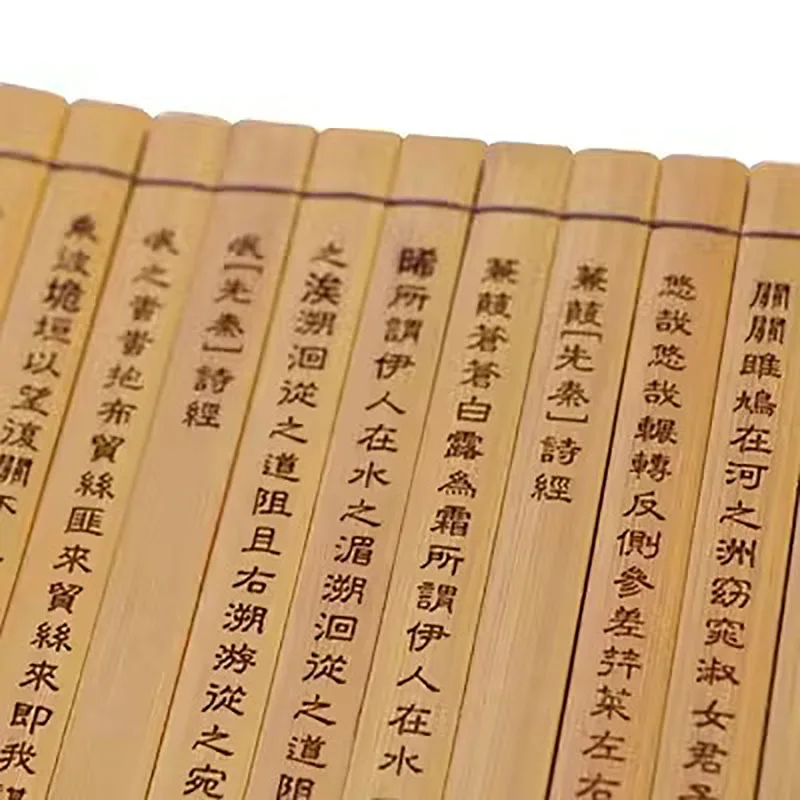 關關雎鳩在河之洲窈窕淑女君子
悠哉悠哉輾轉反側參差荇菜左右
蒹葭[先秦]詩經
蒹葭蒼蒼白露為霜所謂伊人在水
晞所謂伊人在水之湄溯洄從之道阻
之涘溯洄從之道阻且右溯游從之宛
氓[先秦]詩經
氓之蚩蚩抱布貿絲匪來貿絲來即我
乘彼垝垣以望復關不